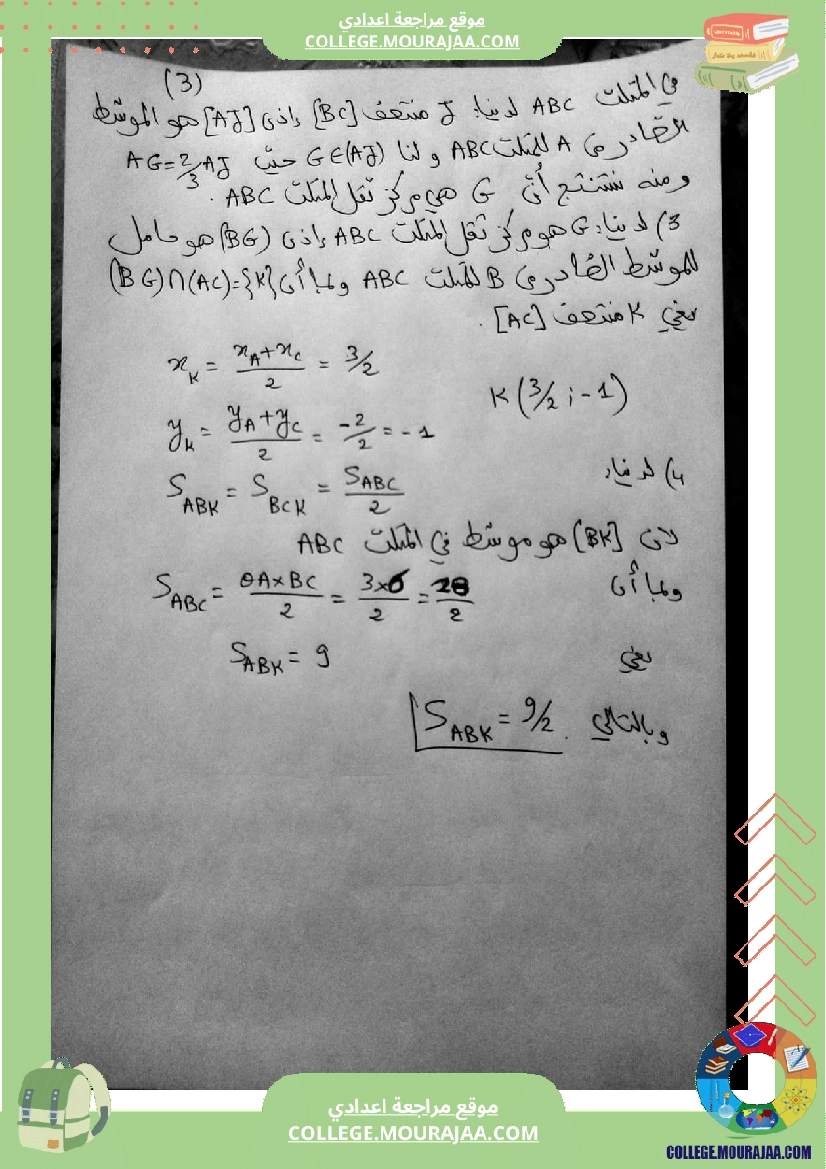 موقع مراجعة اعدادي
COLLEGE.MOURAJAA.COM
(3)
في المثلث ABC لدينا: J منتصف [BC] إذن [AJ] هو الموسّط
الصّادر من A للمثلث ABC و لنا G∈(AJ) حيث AG=2/3 AJ
و منه نستنتج أنّ G هي مركز ثقل المثلث ABC.
3) لدينا: G هو مركز ثقل المثلث ABC إذن (BG) هو حامل
للموسّط الصّادر من B للمثلث ABC وبما أن (BG)∩(AC)={K}
يعني K منتصف [AC].
x_K = (x_A+x_C)/2 = 3/2
K(3/2 ; -1)
y_K = (y_A+y_C)/2 = -2/2 = -1
4) لدينا:
S_ABK = S_BCK = S_ABC/2
لأن [BK] هو موسّط في المثلث ABC
وبما أن S_ABC = (OA×BC)/2 = (3×6)/2 = 18/2
يعني S_ABK = 9
وبالتالي S_ABK = 9/2.
موقع مراجعة اعدادي
COLLEGE.MOURAJAA.COM
COLLEGE.MOURAJAA.COM